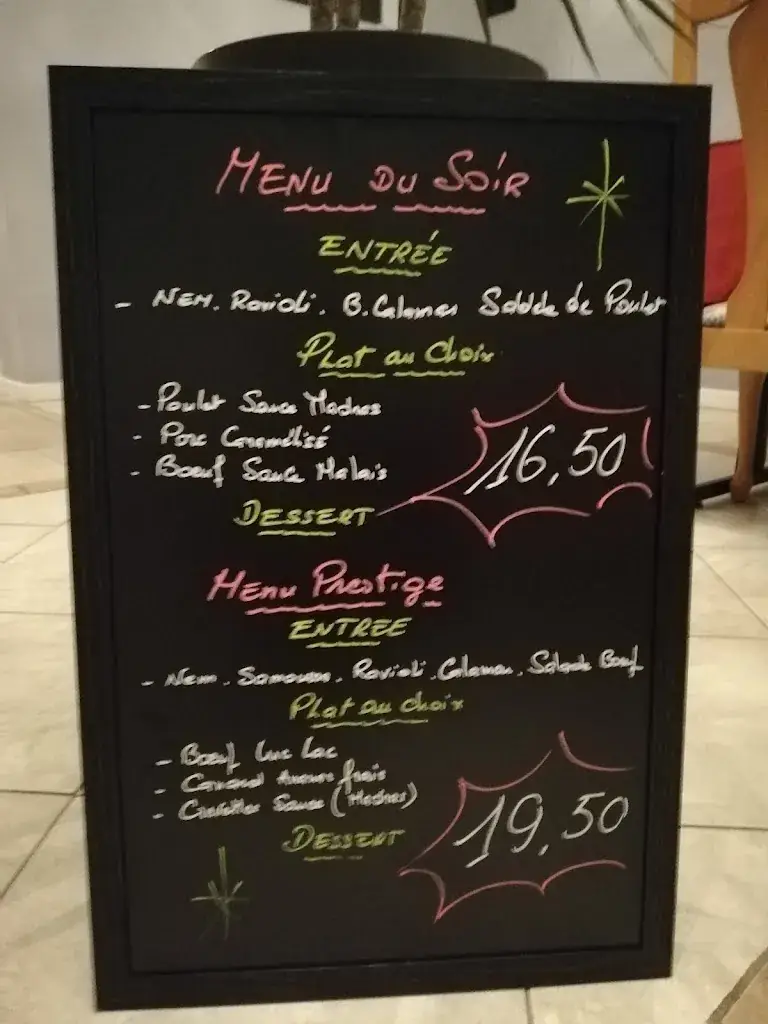 MENU DU SOIR
ENTRÉE
- NEM. Ravioli. B. Calamar Salade de Poulet
Plat au Choix
- Poulet Sauce Madras
- Porc Caramélisé
- Boeuf Sauce Malais
16,50
DESSERT
Menu Prestige
ENTREE
- Nem. Samoussa. Ravioli. Calamar. Salade Boeuf
Plat au choix
- Boeuf Luc Lac
- Canard Ananas frais
- Crevettes Sauce (Madras)
19,50
DESSERT